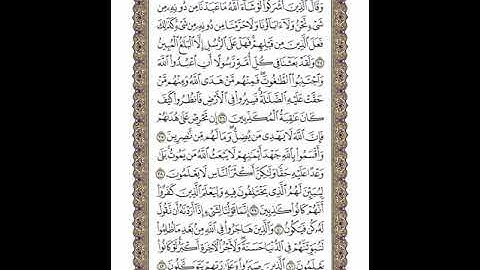 وَقَالَ ٱلَّذِينَ أَشْرَكُوا۟ لَوْ شَآءَ ٱللَّهُ مَا عَبَدْنَا مِن دُونِهِۦ مِن
شَىْءٍ نَّحْنُ وَلَآ ءَابَآؤُنَا وَلَا حَرَّمْنَا مِن دُونِهِۦ مِن شَىْءٍ كَذَٰلِكَ
فَعَلَ ٱلَّذِينَ مِن قَبْلِهِمْ فَهَلْ عَلَى ٱلرُّسُلِ إِلَّا ٱلْبَلَٰغُ ٱلْمُبِينُ
٣٥ وَلَقَدْ بَعَثْنَا فِى كُلِّ أُمَّةٍ رَّسُولًا أَنِ ٱعْبُدُوا۟ ٱللَّهَ
وَٱجْتَنِبُوا۟ ٱلطَّٰغُوتَ فَمِنْهُم مَّنْ هَدَى ٱللَّهُ وَمِنْهُم مَّنْ
حَقَّتْ عَلَيْهِ ٱلضَّلَٰلَةُ فَسِيرُوا۟ فِى ٱلْأَرْضِ فَٱنظُرُوا۟ كَيْفَ
كَانَ عَٰقِبَةُ ٱلْمُكَذِّبِينَ ٣٦ إِن تَحْرِصْ عَلَىٰ هُدَىٰهُمْ
فَإِنَّ ٱللَّهَ لَا يَهْدِى مَن يُضِلُّ وَمَا لَهُم مِّن نَّٰصِرِينَ ٣٧
وَأَقْسَمُوا۟ بِٱللَّهِ جَهْدَ أَيْمَٰنِهِمْ لَا يَبْعَثُ ٱللَّهُ مَن يَمُوتُ بَلَىٰ
وَعْدًا عَلَيْهِ حَقًّا وَلَٰكِنَّ أَكْثَرَ ٱلنَّاسِ لَا يَعْلَمُونَ ٣٨
لِيُبَيِّنَ لَهُمُ ٱلَّذِى يَخْتَلِفُونَ فِيهِ وَلِيَعْلَمَ ٱلَّذِينَ كَفَرُوٓا۟
أَنَّهُمْ كَانُوا۟ كَٰذِبِينَ ٣٩ إِنَّمَا قَوْلُنَا لِشَىْءٍ إِذَآ أَرَدْنَٰهُ أَن نَّقُولَ
لَهُۥ كُن فَيَكُونُ ٤٠ وَٱلَّذِينَ هَاجَرُوا۟ فِى ٱللَّهِ مِنۢ بَعْدِ مَا ظُلِمُوا۟
لَنُبَوِّئَنَّهُمْ فِى ٱلدُّنْيَا حَسَنَةً وَلَأَجْرُ ٱلْءَاخِرَةِ أَكْبَرُ لَوْ كَانُوا۟
يَعْلَمُونَ ٤١ ٱلَّذِينَ صَبَرُوا۟ وَعَلَىٰ رَبِّهِمْ يَتَوَكَّلُونَ ٤٢